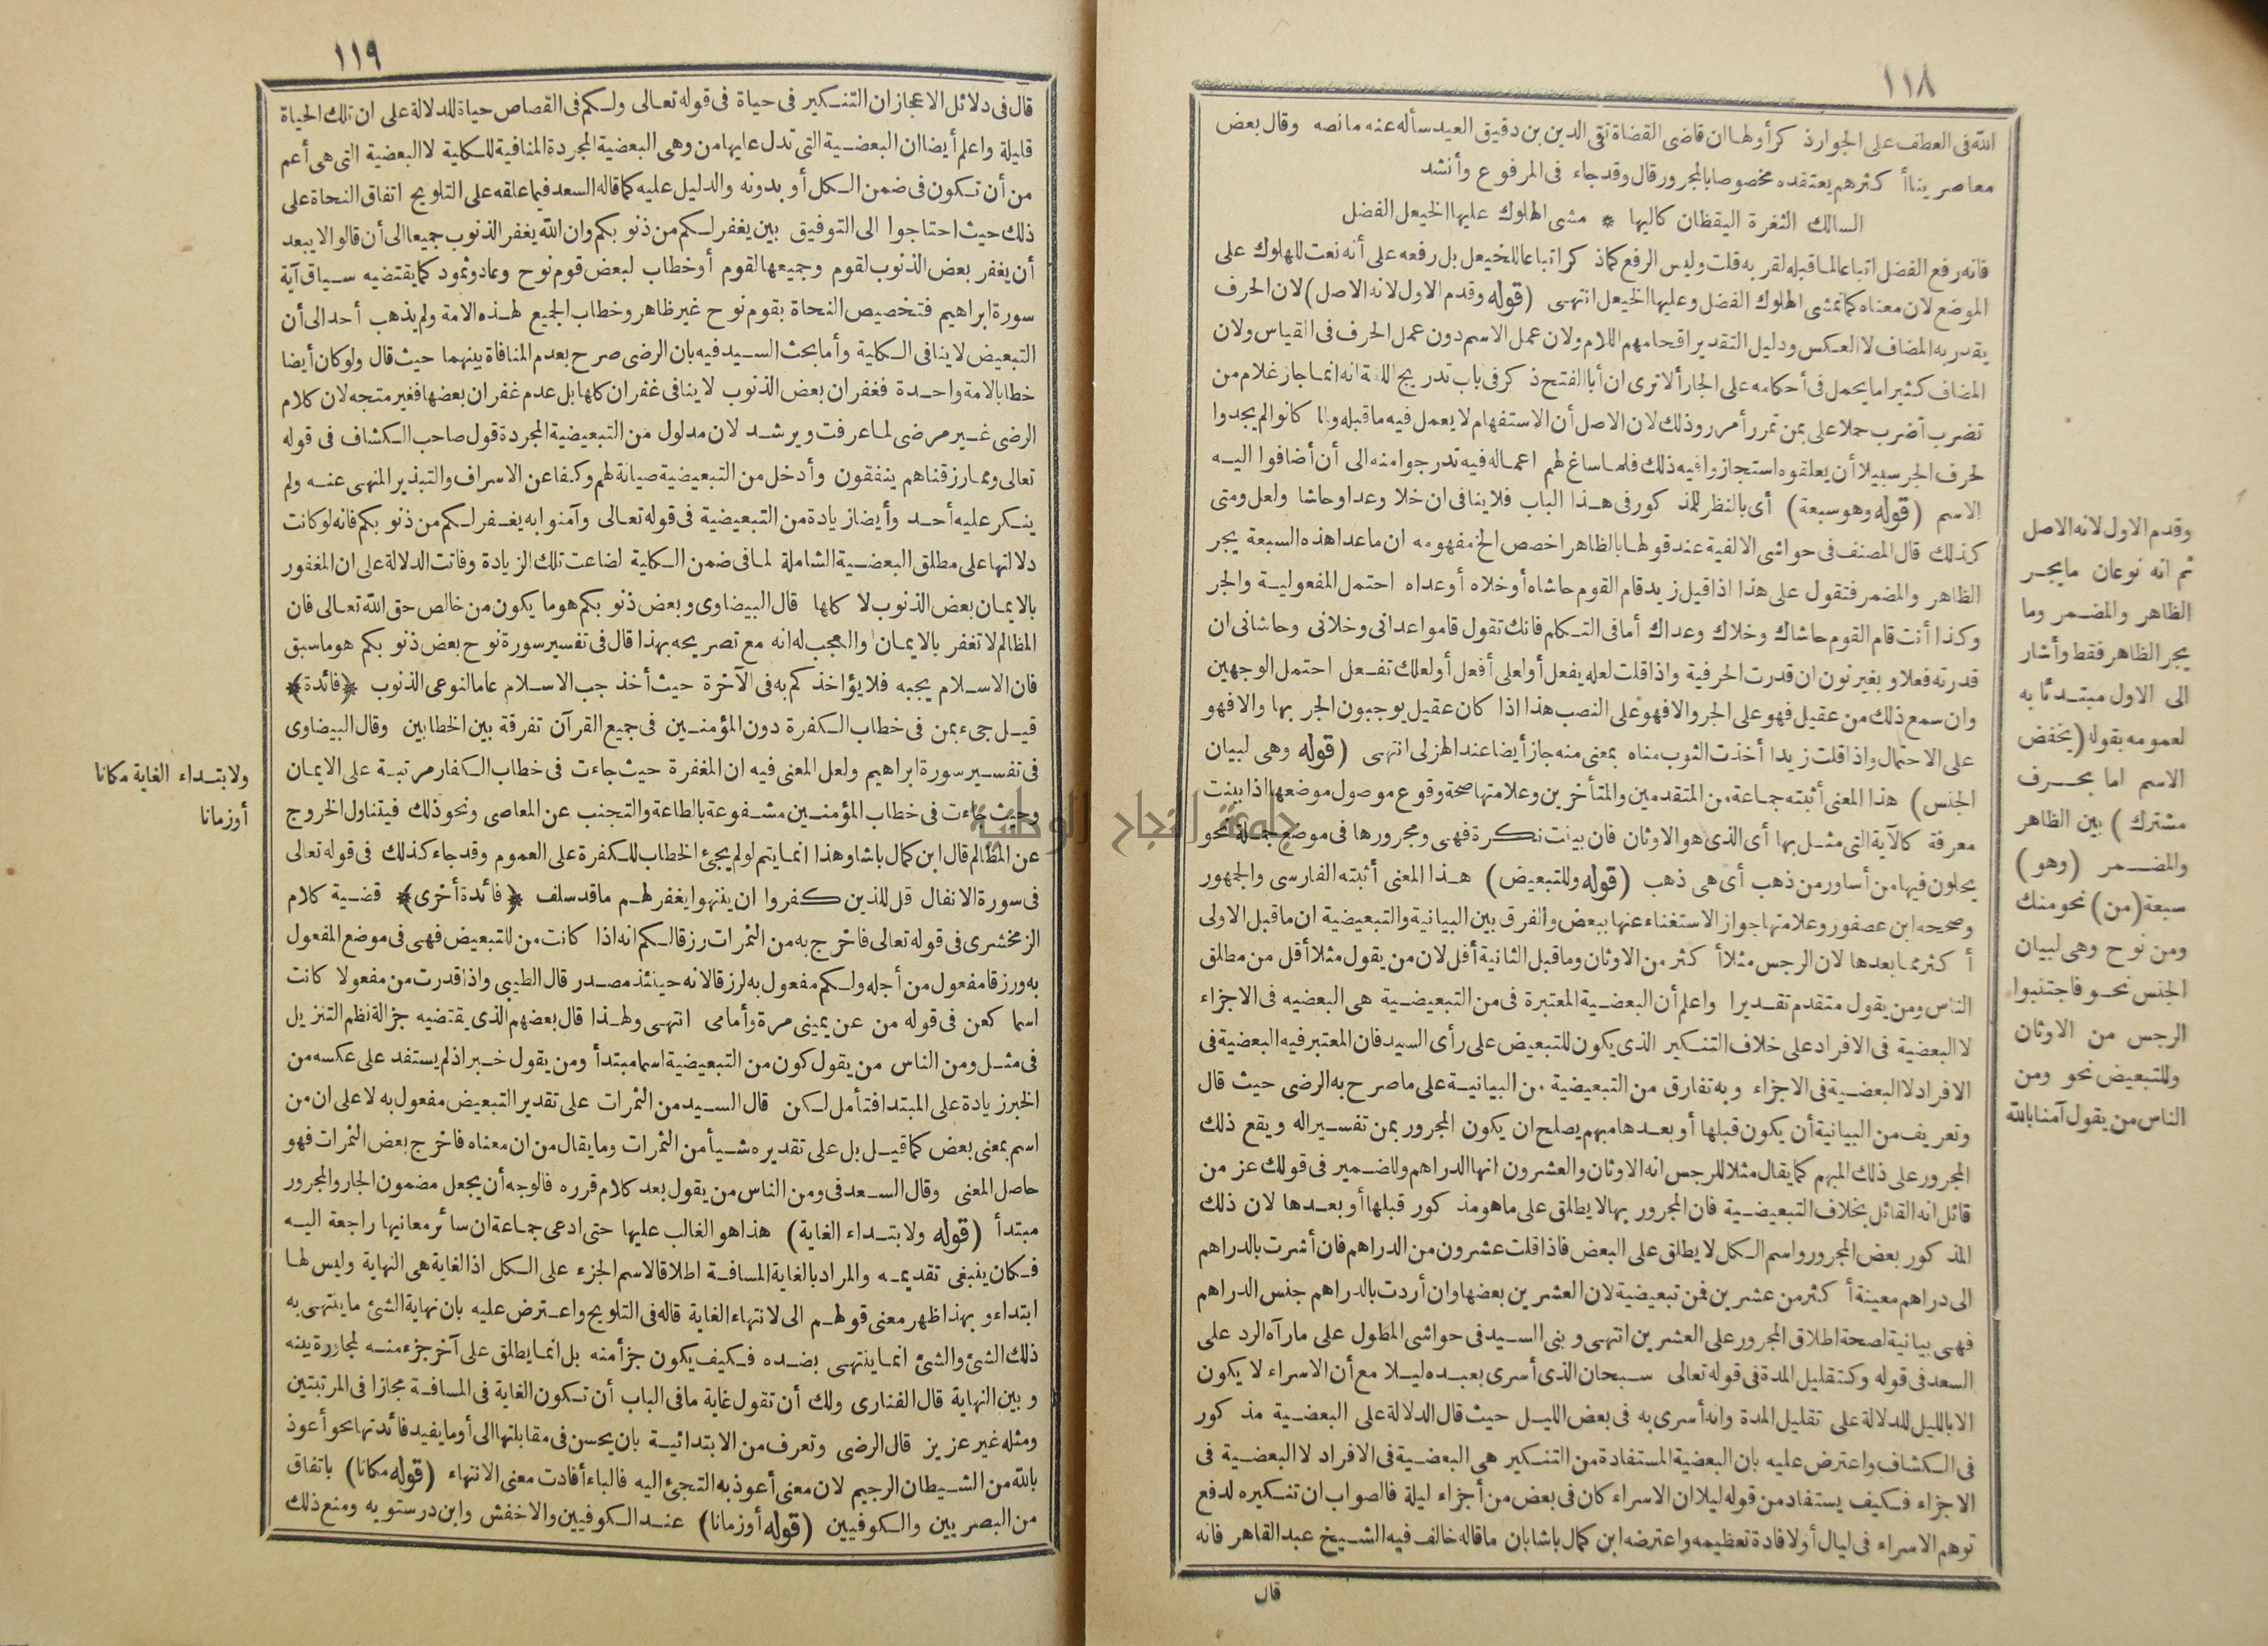 ١١٨
الله فى العطف على الجوار ذكر أولها ان قاضى القضاة تقى الدين بن دقيق العيد سأله عنه ما نصه وقال بعض
معاصرينا أكثرهم يعتقده مخصوصا بالمجرور قال وقد جاء فى المرفوع وأنشد
السالك الثغرة اليقظان كاليها * مشى الهلوك عليها الخيعل الفضل
فانه رفع الفضل اتباعا لما قبله لقربه قلت وليس الرفع كما ذكر اتباعا للخيعل بل رفعه على أنه نعت للهلوك على
الموضع لان معناه كما تمشى الهلوك الفضل وعليها الخيعل انتهى (قوله وقدم الاول لانه الاصل) لان الحرف
يقدر به المضاف لا العكس ودليل التقدير اقحامهم اللام ولان عمل الاسم دون عمل الحرف فى القياس ولان
المضاف كثيرا ما يحمل فى أحكامه على الجار ألا ترى ان أبا الفتح ذكر فى باب تدريج اللغة انه انما جاز غلام من
تضرب أضرب حملا على بمن تمرر أمرر وذلك لان الاصل أن الاستفهام لا يعمل فيه ما قبله ولما كانوا لم يجدوا
لحرف الجر سبيلا أن يعلقوه استجازوا فيه ذلك فلما ساغ لهم اعماله فيه تدرجوا منه الى أن أضافوا اليه
الاسم (قوله وهو سبعة) أى بالنظر للمذكور فى هذا الباب فلا ينافى ان خلا وعدا وحاشا ولعل ومتى
كذلك قال المصنف فى حواشى الالفية عند قولها بالظاهر اخصص الخ مفهومه ان ما عدا هذه السبعة يجر
الظاهر والمضمر فتقول على هذا اذا قيل زيد قام القوم حاشاه أو خلاه أو عداه احتمل المفعولية والجر
وكذا أنت قام القوم حاشاك وخلاك وعداك أما فى التكلم فانك تقول قاموا عدانى وخلانى وحاشانى ان
قدرته فعلا وبغير نون ان قدرت الحرفية واذا قلت لعله يفعل أو لعلى أفعل أو لعلك تفعل احتمل الوجهين
وان سمع ذلك من عقيل فهو على الجر والا فهو على النصب هذا اذا كان عقيل يوجبون الجر بها والا فهو
على الاحتمال واذا قلت زيدا أخذت الثوب متاه بمعنى منه جاز أيضا عند الهزلى انتهى (قوله وهى لبيان
الجنس) هذا المعنى أثبته جماعة من المتقدمين والمتأخرين وعلامتها صحة وقوع موصول موضعها اذا بينت
معرفة كالآية التى مثل بها أى الذى هو الاوثان فان بينت نكرة فهى ومجرورها فى موضع جملة نحو
يحلون فيها من أساور من ذهب أى هى ذهب (قوله وللتبعيض) هذا المعنى أثبته الفارسى والجمهور
وصححه ابن عصفور وعلامتها جواز الاستغناء عنها ببعض والفرق بين البيانية والتبعيضية ان ما قبل الاولى
أكثر مما بعدها لان الرجس مثلا أكثر من الاوثان وما قبل الثانية أقل لان من يقول مثلا أقل من مطلق
الناس ومن يقول متقدم تقديرا واعلم أن البعضية المعتبرة فى من التبعيضية هى البعضيه فى الاجزاء
لا البعضية فى الافراد على خلاف التنكير الذى يكون للتبعيض على رأى السيد فان المعتبر فيه البعضية فى
الافراد لا البعضية فى الاجزاء وبه تفارق من التبعيضية من البيانية على ما صرح به الرضى حيث قال
وتعريف من البيانية أن يكون قبلها أو بعدها مبهم يصلح ان يكون المجرور بمن تفسيرا له ويقع ذلك
المجرور على ذلك المبهم كما يقال مثلا للرجس انه الاوثان والعشرون انها الدراهم وللضمير فى قولك عز من
قائل انه القائل بخلاف التبعيضية فان المجرور بها لا يطلق على ما هو مذكور قبلها أو بعدها لان ذلك
المذكور بعض المجرور واسم الكل لا يطلق على البعض فاذا قلت عشرون من الدراهم فان أشرت بالدراهم
الى دراهم معينة أكثر من عشرين فمن تبعيضية لان العشرين بعضها وان أردت بالدراهم جنس الدراهم
فهى بيانية لصحة اطلاق المجرور على العشرين انتهى وبنى السيد فى حواشى المطول على ما رآه الرد على
السعد فى قوله وكتقليل المدة فى قوله تعالى سبحان الذى أسرى بعبده ليلا مع أن الاسراء لا يكون
الا بالليل للدلالة على تقليل المدة وانه أسرى به فى بعض الليل حيث قال الدلالة على البعضية مذكور
فى الكشاف واعترض عليه بان البعضية المستفادة من التنكير هى البعضية فى الافراد لا البعضية فى
الاجزاء فكيف يستفاد من قوله ليلا ان الاسراء كان فى بعض من أجزاء ليلة فالصواب ان تنكيره لدفع
توهم الاسراء فى ليال أو لافادة تعظيمه واعترضه ابن كمال باشا بان ما قاله خالف فيه الشيخ عبد القاهر فانه
قال
وقدم الاول لانه الاصل
ثم انه نوعان ما يجر
الظاهر والمضمر وما
يجر الظاهر فقط وأشار
الى الاول مبتدئا به
لعمومه بقوله (يخفض
الاسم اما بحرف
مشترك) بين الظاهر
والمضمر (وهو)
سبعة (من) نحو منك
ومن نوح وهى لبيان
الجنس نحو فاجتنبوا
الرجس من الاوثان
وللتبعيض نحو ومن
الناس من يقول آمنا بالله
١١٩
قال فى دلائل الاعجاز ان التنكير فى حياة فى قوله تعالى ولكم فى القصاص حياة للدلالة على ان تلك الحياة
قليلة واعلم أيضا ان البعضية التى تدل عليها من وهى البعضية المجردة المنافية للكلية لا البعضية التى هى أعم
من أن تكون فى ضمن الكل أو بدونه والدليل عليه كما قاله السعد فيما علقه على التلويح اتفاق النحاة على
ذلك حيث احتاجوا الى التوفيق بين يغفر لكم من ذنوبكم وان الله يغفر الذنوب جميعا الى أن قالوا لا يبعد
أن يغفر بعض الذنوب لقوم وجميعها لقوم أو خطاب لبعض قوم نوح وعاد وثمود كما يقتضيه سياق آية
سورة ابراهيم فتخصيص النحاة بقوم نوح غير ظاهر وخطاب الجميع لهذه الامة ولم يذهب أحد الى أن
التبعيض لا ينافى الكلية وأما بحث السيد فيه بان الرضى صرح بعدم المنافاة بينهما حيث قال ولو كان أيضا
خطابا لامة واحدة فغفران بعض الذنوب لا ينافى غفران كلها بل عدم غفران بعضها فغير متجه لان كلام
الرضى غير مرضى لما عرفت ويرشد لان مدلول من التبعيضية المجردة قول صاحب الكشاف فى قوله
تعالى ومما رزقناهم ينفقون وأدخل من التبعيضية صيانة لهم وكفا عن الاسراف والتبذير المنهى عنه ولم
ينكر عليه أحد وأيضا زيادة من التبعيضية فى قوله تعالى وآمنوا به يغفر لكم من ذنوبكم فانه لو كانت
دلالتها على مطلق البعضية الشاملة لما فى ضمن الكلية لضاعت تلك الزيادة وفاتت الدلالة على ان المغفور
بالايمان بعض الذنوب لا كلها قال البيضاوى وبعض ذنوبكم هو ما يكون من خالص حق الله تعالى فان
المظالم لا تغفر بالايمان والعجب له انه مع تصريحه بهذا قال فى تفسير سورة نوح بعض ذنوبكم هو ما سبق
فان الاسلام يجبه فلا يؤاخذكم به فى الآخرة حيث أخذ جب الاسلام عاما لنوعى الذنوب ﴿فائدة﴾
قيل جىء بمن فى خطاب الكفرة دون المؤمنين فى جميع القرآن تفرقة بين الخطابين وقال البيضاوى
فى تفسير سورة ابراهيم ولعل المعنى فيه ان المغفرة حيث جاءت فى خطاب الكفار مرتبة على الايمان
وحيث جاءت فى خطاب المؤمنين مشفوعة بالطاعة والتجنب عن المعاصى ونحو ذلك فيتناول الخروج
عن المظالم قال ابن كمال باشا وهذا انما يتم لو لم يجئ الخطاب للكفرة على العموم وقد جاء كذلك فى قوله تعالى
فى سورة الانفال قل للذين كفروا ان ينتهوا يغفر لهم ما قد سلف ﴿فائدة أخرى﴾ قضية كلام
الزمخشرى فى قوله تعالى فاخرج به من الثمرات رزقا لكم انه اذا كانت من للتبعيض فهى فى موضع المفعول
به ورزقا مفعول من أجله ولكم مفعول به لرزقا لانه حينئذ مصدر قال الطيبى واذا قدرت من مفعولا كانت
اسما كعن فى قوله من عن يمينى مرة وأمامى انتهى ولهذا قال بعضهم الذى يقتضيه جزالة نظم التنزيل
فى مثل ومن الناس من يقول كون من التبعيضية اسما مبتدأ ومن يقول خبرا اذ لم يستفد على عكسه من
الخبر زيادة على المبتدا فتأمل لكن قال السيد من الثمرات على تقدير التبعيض مفعول به لا على ان من
اسم بمعنى بعض كما قيل بل على تقديره شيأ من الثمرات وما يقال من ان معناه فاخرج بعض الثمرات فهو
حاصل المعنى وقال السعد فى ومن الناس من يقول بعد كلام قرره فالوجه أن يجعل مضمون الجار والمجرور
مبتدأ (قوله ولابتداء الغاية) هذا هو الغالب عليها حتى ادعى جماعة ان سائر معانيها راجعة اليه
فكان ينبغى تقديمه والمراد بالغاية المسافة اطلاقا لاسم الجزء على الكل اذ الغاية هى النهاية وليس لها
ابتداء وبهذا ظهر معنى قولهم الى لانتهاء الغاية قاله فى التلويح واعترض عليه بان نهاية الشئ ما ينتهى به
ذلك الشئ والشئ انما ينتهى بضده فكيف يكون جزأ منه بل انما يطلق على آخر جزء منه لمجاورة بينه
وبين النهاية قال الفنارى ولك أن تقول غاية ما فى الباب أن تكون الغاية فى المسافة مجازا فى المرتبتين
ومثله غير عزيز قال الرضى وتعرف من الابتدائية بان يحسن فى مقابلتها الى أو ما يفيد فائدتها نحو أعوذ
بالله من الشيطان الرجيم لان معنى أعوذ به التجئ اليه فالباء أفادت معنى الانتهاء (قوله مكانا) باتفاق
من البصريين والكوفيين (قوله أو زمانا) عند الكوفيين والاخفش وابن درستويه ومنع ذلك
ولابتداء الغاية مكانا
أو زمانا
جامعة النجاح الوطنية